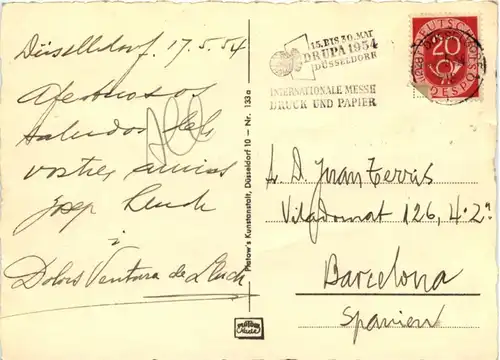 Düsseldorf, 17.5.54
Afectuosos
saludos dels
vostres amics
Josep Lluch
i
Dolors Ventura de Lluch
Platow's Kunstanstalt, Düsseldorf 10 – Nr. 133a
15. BIS 30. MAI
DRUPA 1954
DÜSSELDORF
INTERNATIONALE MESSE
DRUCK UND PAPIER
DEUTSCHE
20
POST
Juan
Viladomat 126, 4º 2ª
Barcelona
Spanien